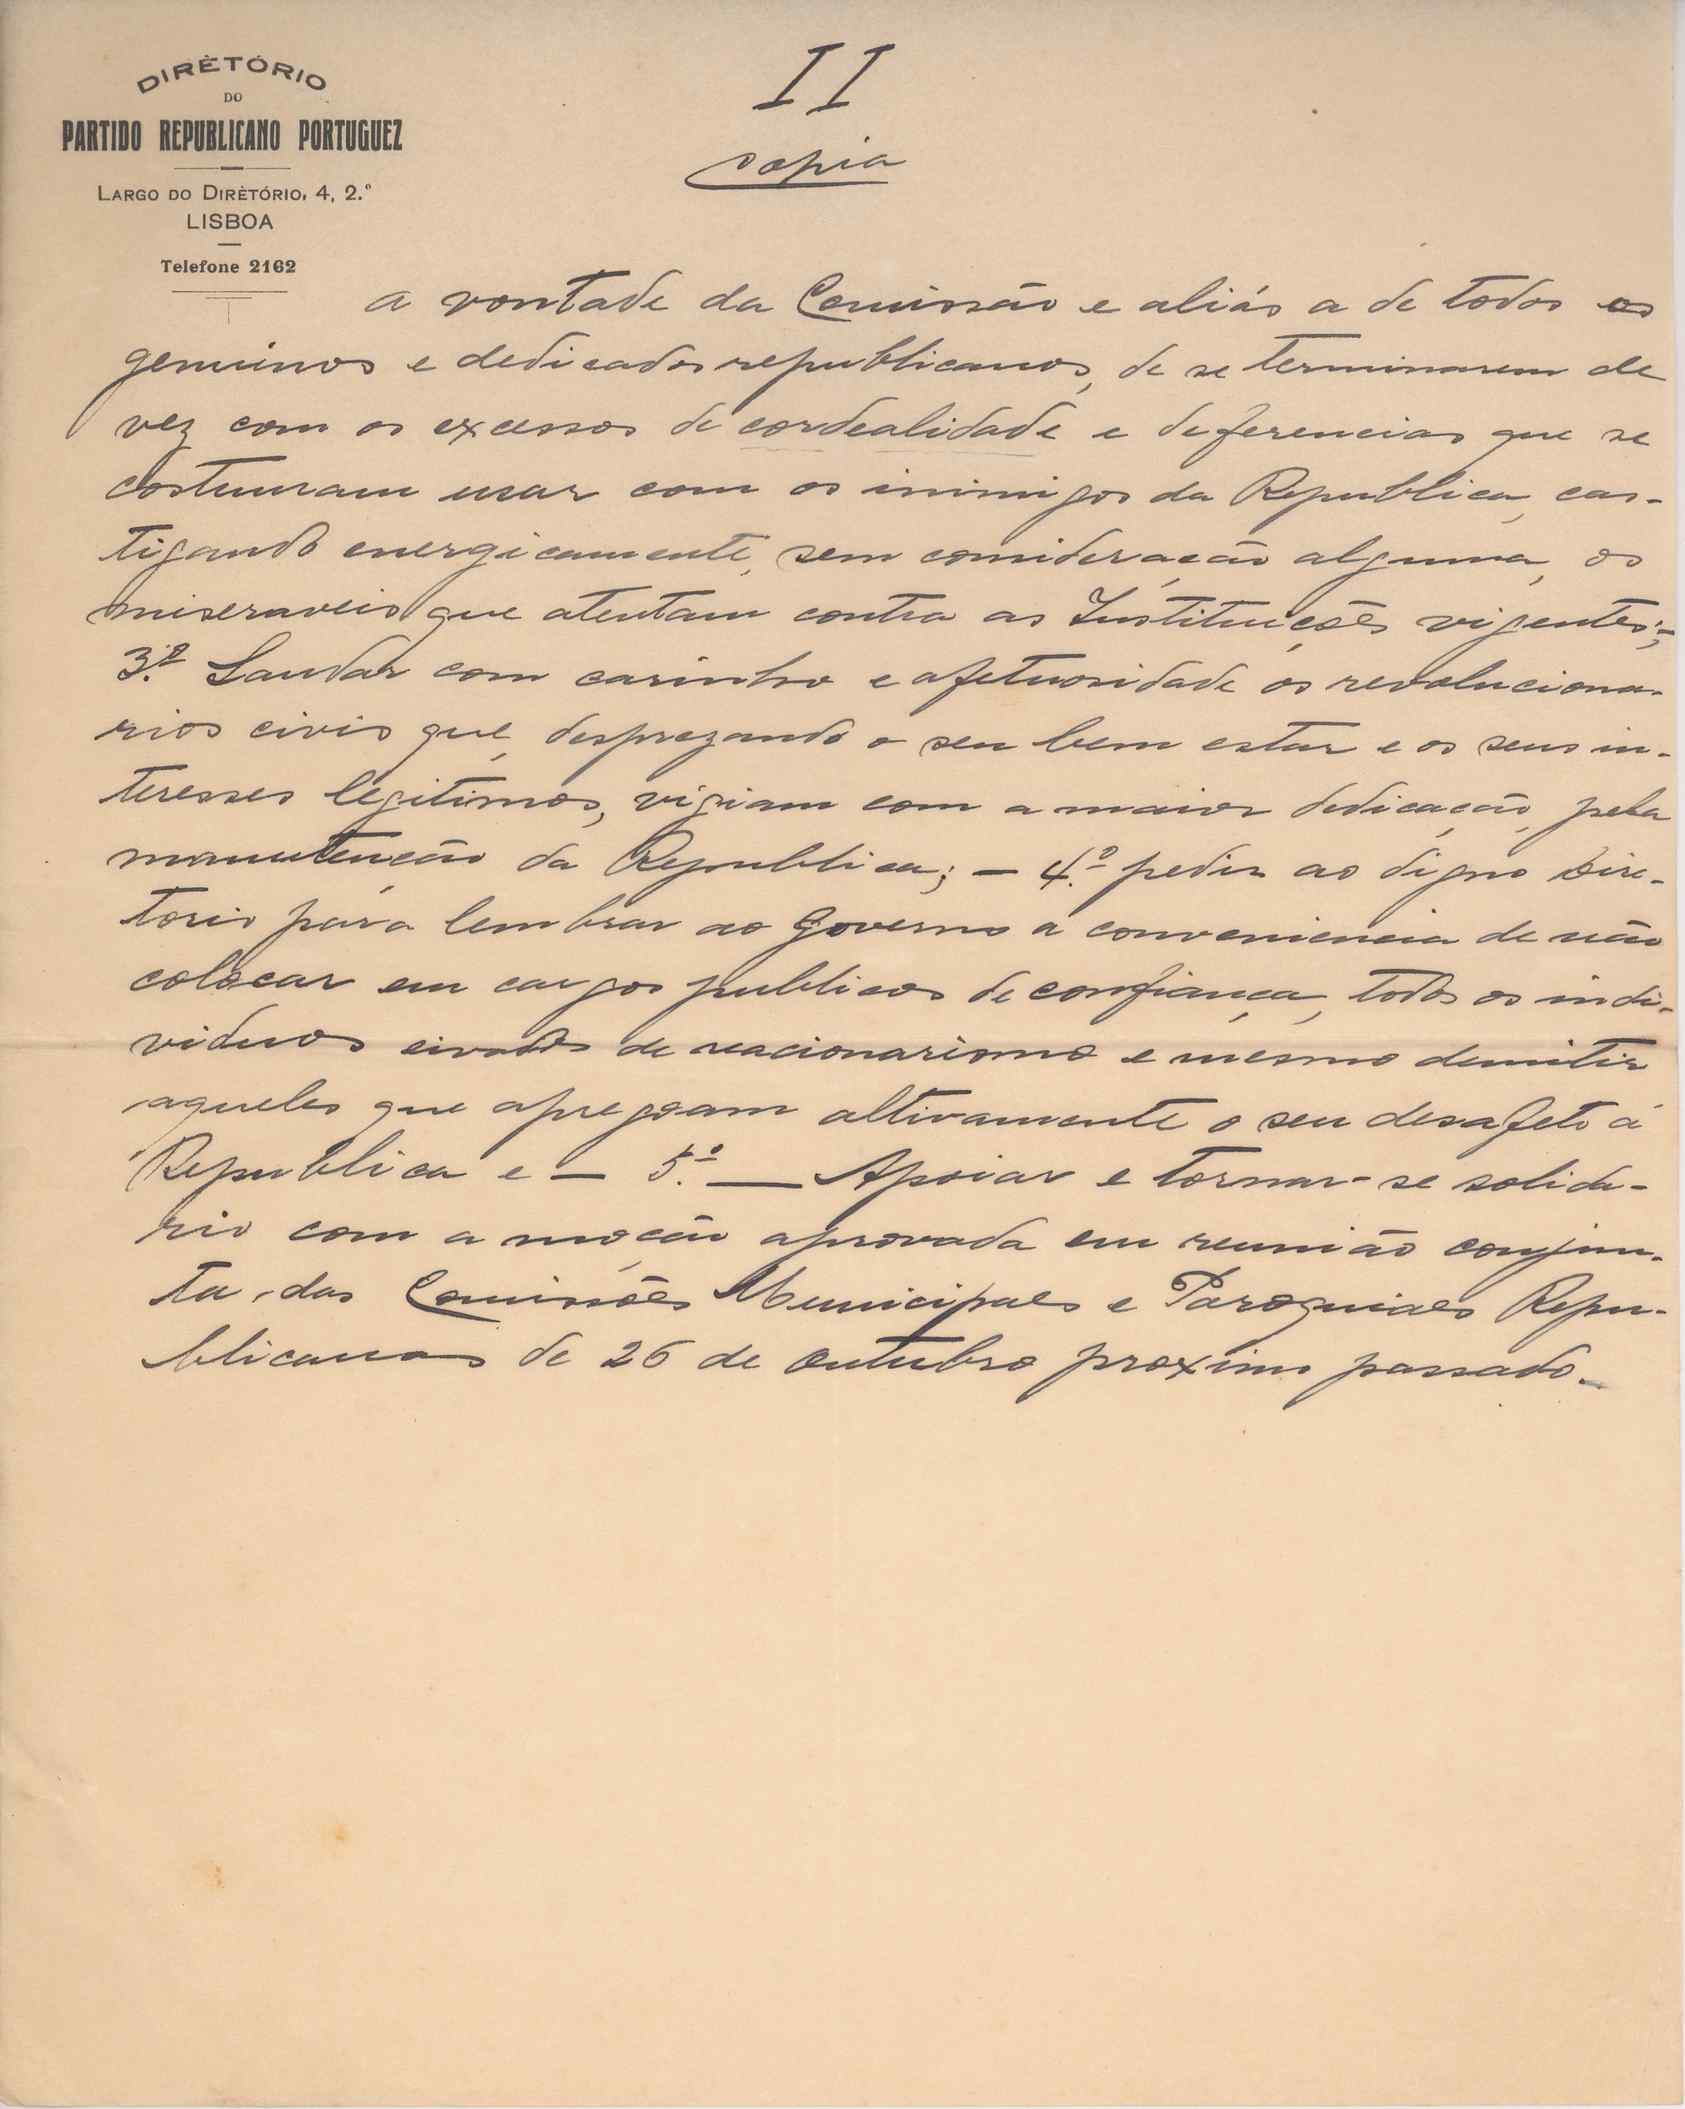 DIRÈTÓRIO
DO
PARTIDO REPUBLICANO PORTUGUEZ
LARGO DO DIRÈTÓRIO, 4, 2.º
LISBOA
Telefone 2162
II
copia
a vontade da Comissão e aliás a de todos os
genuinos e dedicados republicanos, de se terminarem de
vez com os excessos de cordealidade e deferencias que se
costumam usar com os inimigos da Republica, cas-
tigando energicamente, sem consideração alguma, os
miseraveis que atentam contra as Instituições vigentes;-
3.º Saudar com carinho e afetuosidade os revoluciona-
rios civis que, desprezando o seu bem estar e os seus in-
teresses legitimos, vigiam com a maior dedicação, pela
manutenção da Republica; - 4.º pedir ao digno Dire-
torio para lembrar ao Governo a conveniencia de não
colocar em cargos publicos de confiança, todos os indi-
viduos eivados de reacionarismo e mesmo demitir
aqueles que apregoam altivamente o seu desafeto á
Republica e — 5.º — Apoiar e tornar-se solida-
rio com a moção aprovada em reunião conjun-
ta, das Comissões Municipaes e Paroquiaes Repu-
blicanas de 26 de outubro proximo passado.